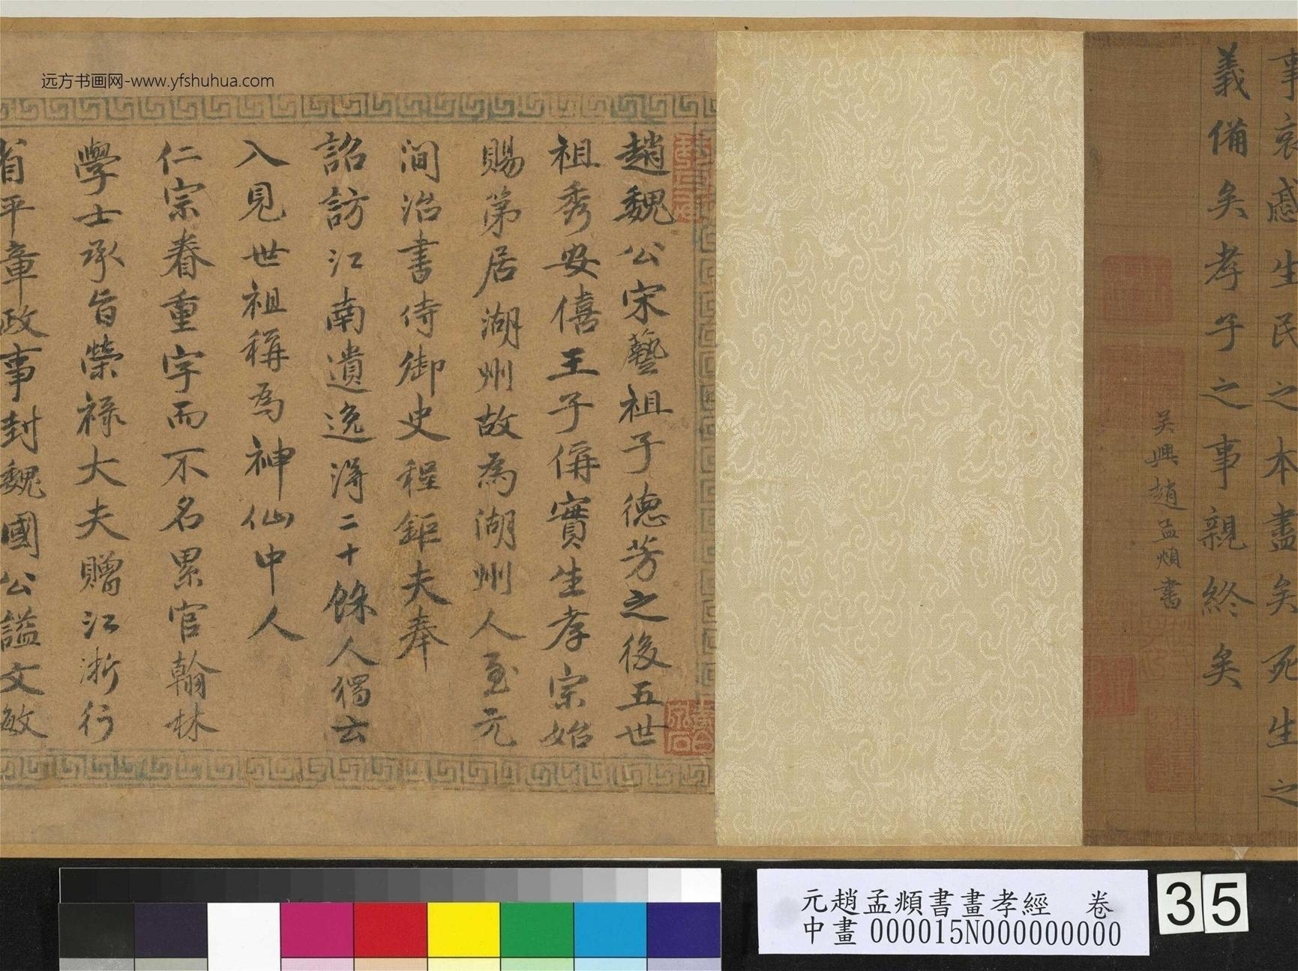 远方书画网-www.yfshuhua.com
事哀慼生民之本盡矣死生之
義備矣孝子之事親終矣
吳興趙孟頫書
趙魏公宋藝祖子德芳之後五世
祖秀安僖王子偁實生孝宗始
賜第居湖州故為湖州人至元
間治書侍御史程鉅夫奉
詔訪江南遺逸得二十餘人獨公
入見世祖稱為神仙中人
仁宗眷重字而不名累官翰林
學士承旨榮祿大夫贈江浙行
省平章政事封魏國公謚文敏
元趙孟頫書畫孝經 卷
中畫 000015N000000000
35